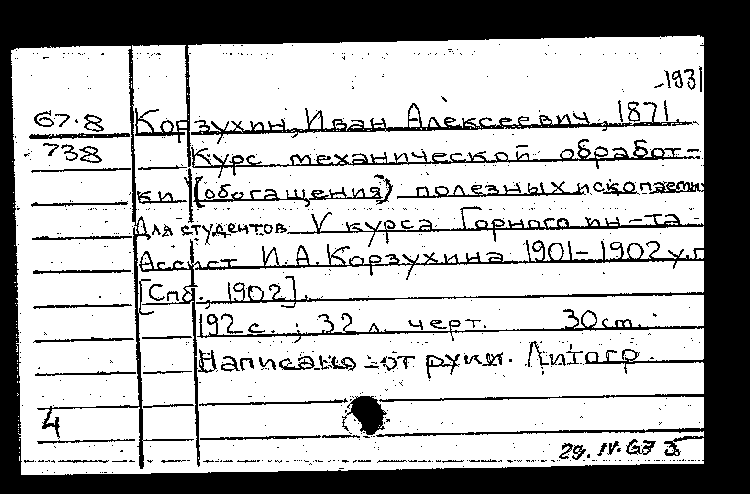 -1931
67.8 Корзухин, Иван Алексеевич, 1871.
738 Курс механической обработ-
ки (обогащения) полезных ископаемы
Для студентов V курса Горного ин-та -
Ассист И.А. Корзухина 1901-1902 у.г
[Спб., 1902].
192 с. ; 32 л. черт. 30 cm.
Написано от руки. Литогр.
4
29.IV.67